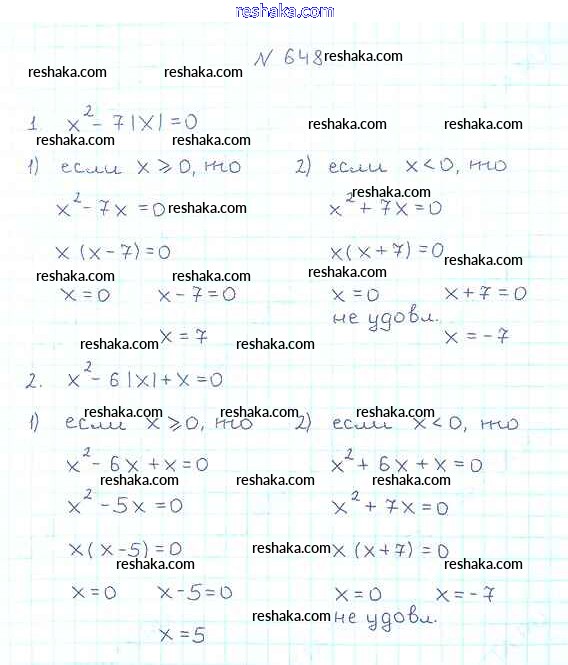 reshaka.com
N 648 reshaka.com
reshaka.com reshaka.com
1. x² - 7|x| = 0
reshaka.com reshaka.com
reshaka.com reshaka.com
1) если x ⩾ 0, то 2) если x < 0, то
reshaka.com
x² - 7x = 0 reshaka.com x² + 7x = 0
x (x - 7) = 0 x(x + 7) = 0
reshaka.com
reshaka.com reshaka.com reshaka.com
x = 0 x - 7 = 0 x = 0 x + 7 = 0
не удовл.
reshaka.com x = 7 reshaka.com x = -7
2. x² - 6|x| + x = 0
reshaka.com reshaka.com reshaka.com
1) если x ⩾ 0, то 2) если x < 0, то
x² - 6x + x = 0 x² + 6x + x = 0
reshaka.com reshaka.com
x² - 5x = 0 x² + 7x = 0
x(x - 5) = 0 reshaka.com x (x + 7) = 0
reshaka.com reshaka.com
x = 0 x - 5 = 0 x = 0 x = -7
reshaka.com не удовл.
x = 5